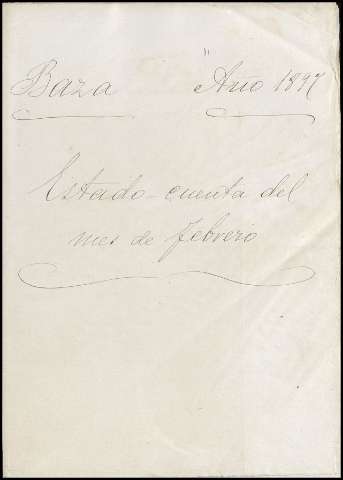 Baza Año 1897
Estado-cuenta del
mes de febrero